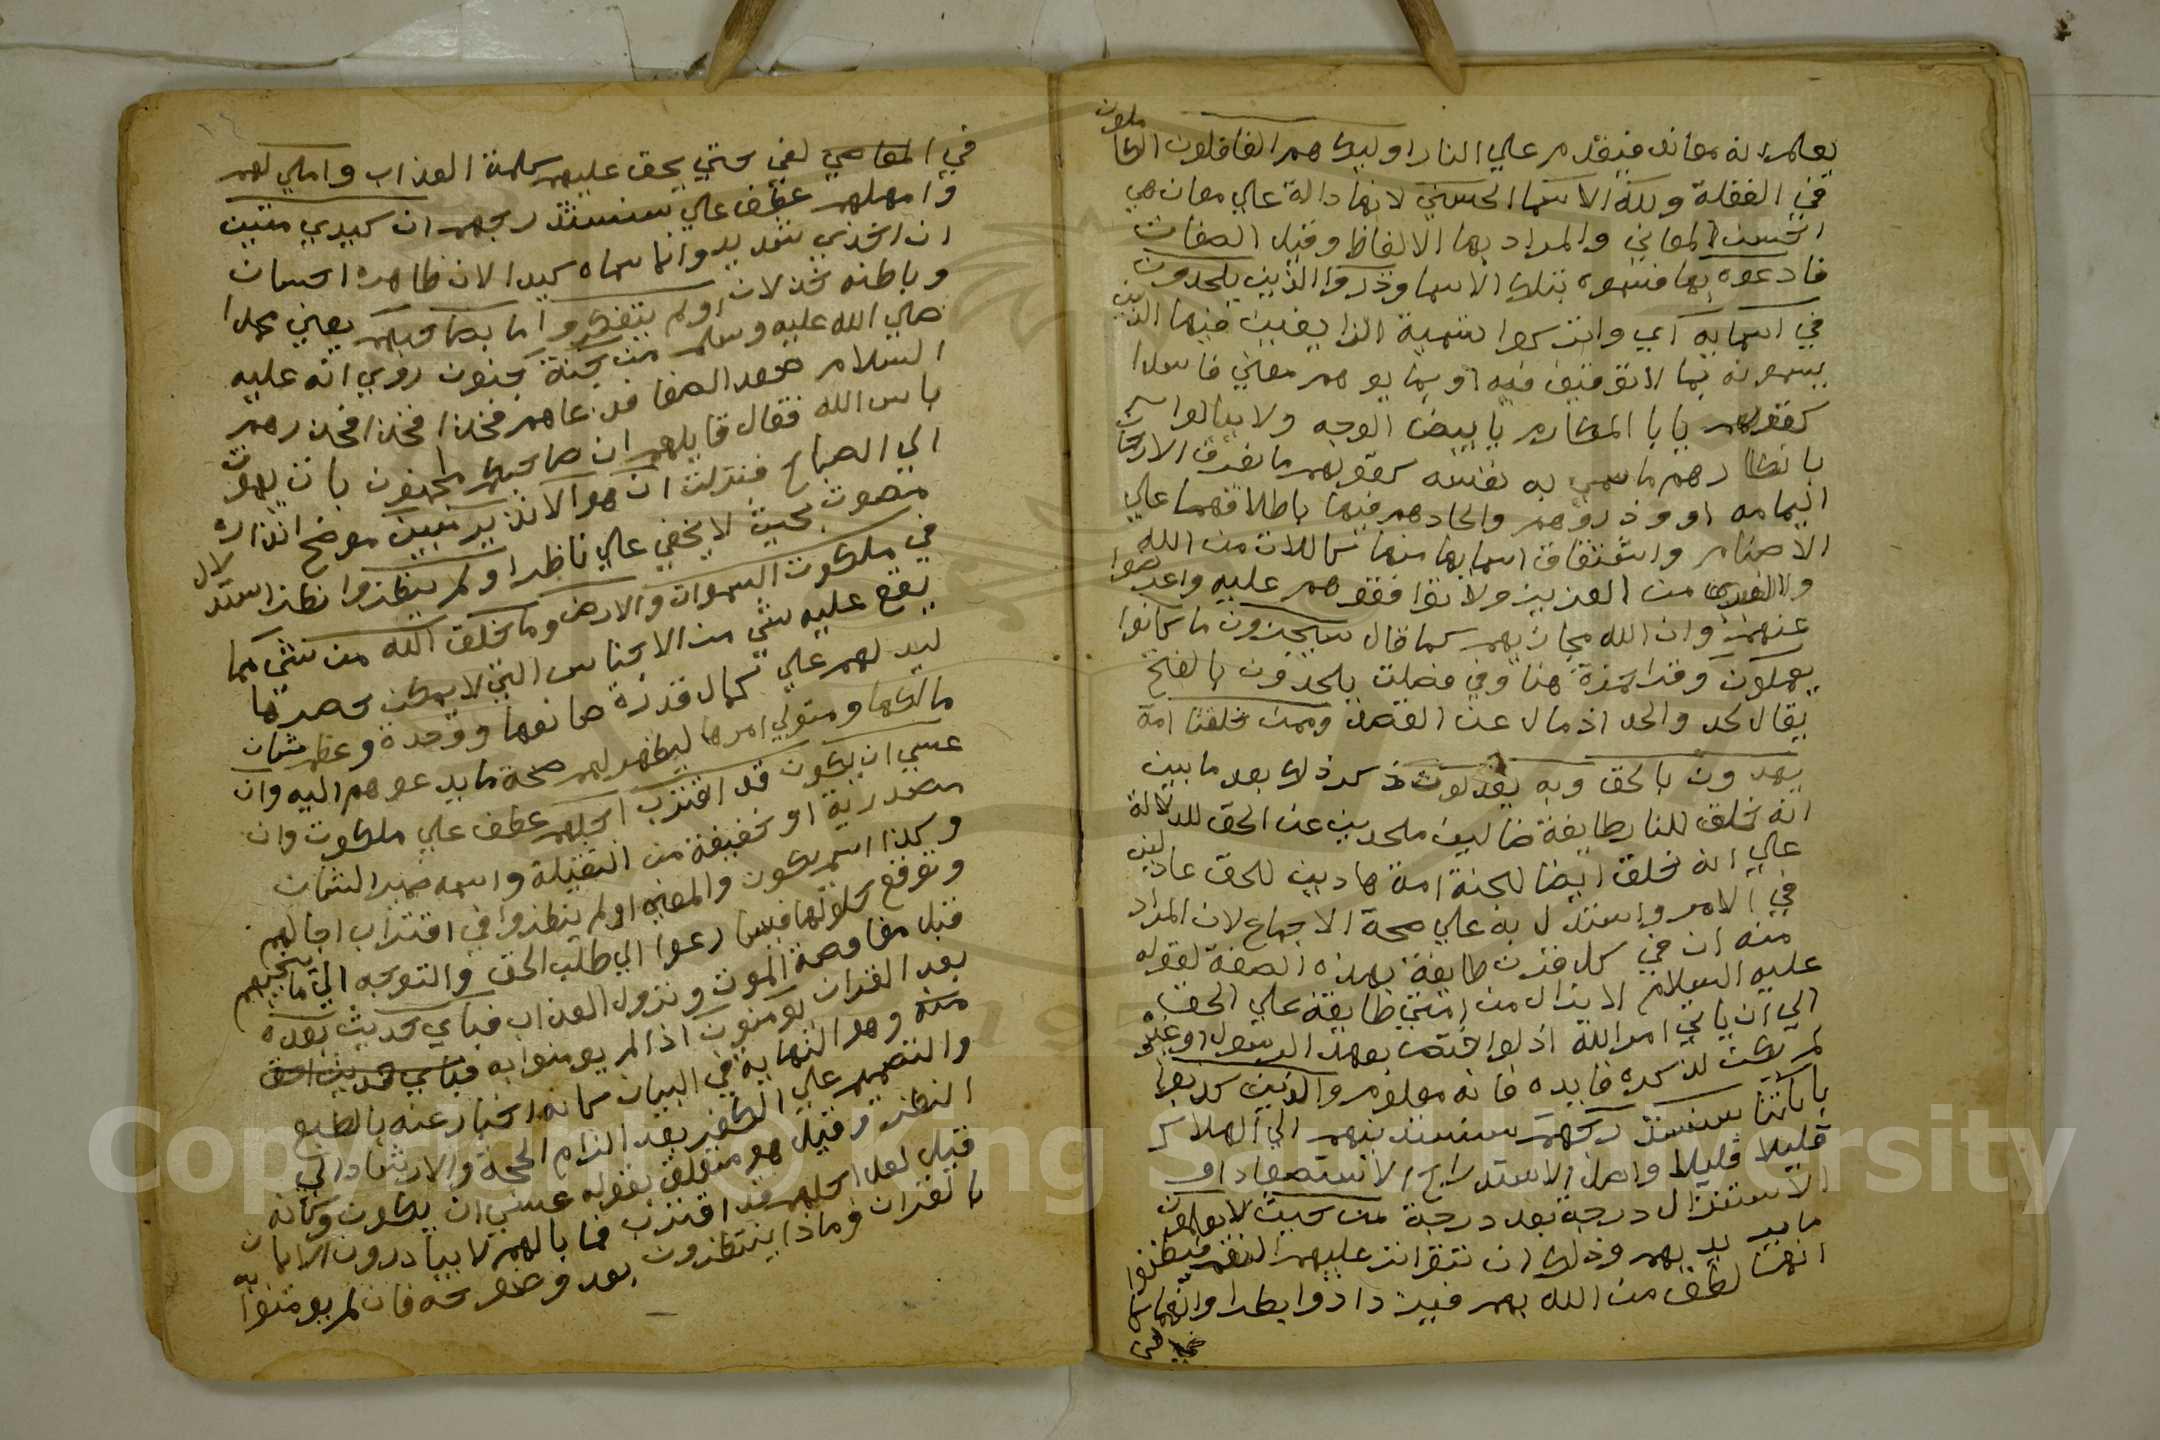 يعلم انه معاند فيقدم علي النار اوليك هم الغافلون الكاملون
في الغفلة ولله الاسما الحسني لانها دالة علي معان هي
احسن المعاني والمراد بها الالفاظ وقيل الصفات
فادعوه بها فسموه بتلك الاسما وذروا الذين يلحدون
في اسمايه اي واتركوا تسمية الزايغين فيها الذين
يسمونه بما لا توقيف فيه او بما يوهم معني فاسدا
كقولهم يابا المكارم يا ابيض الوجه ولا يبالوا
بانكارهم ما سمي به نفسه كقولهم ما نعرف الا رحمن
اليمامه او وذروهم والحادهم فيها باطلاقهما علي
الاصنام واشتقاق اسمايها منها كاللات من الله
والعزي من العزيز ولا توافقوهم عليه واعرضوا
عنهم وان الله مجازيهم كما قال سيجزون ما كانوا
يعملون وقرا حمزة هنا وفي فصلت يلحدون بالفتح
يقال لحد والحد اذ مال عن القصد وممن خلقنا امة
يهدون بالحق وبه يعدلون ذكر ذلك بعد ما بين
انه خلق للنار طايفة ضالين ملحدين عن الحق للدلالة
علي انه خلق ايضا للجنة امة هادين للحق عادلين
في الامر واستدل به علي صحة الاجماع لان المراد
منه ان في كل قرن طايفة بهذه الصفة لقوله
عليه السلام لا يزال من امتي طايفة علي الحق
الي ان ياتي امر الله اذ لو اختص بعهد الرسول او غيره
لم يكن لذكره فايده فانه معلوم والذين كذبوا
باياتنا سنستدرجهم سنستدنيهم الي الهلاك
قليلا قليلا واصل الاستدراج الاستصعاد او
الاستنزال درجة بعد درجة من حيث لا يعلمون
ما يريد بهم وذلك ان تتواتر عليهم النعم فيظنوا
انها لطف من الله بهم فيزدادوا بطرا وانهماكا
في
في المعاصي لغي حتي يحق عليهم كلمة العذاب واملي لهم
وامهلهم عطف علي سنستدرجهم ان كيدي متين
ان اخذي شديد وانما سماه كيدا لان ظاهره احسان
وباطنه خذلان اولم يتفكروا ما بصاحبهم يعني محمدا
صلي الله عليه وسلم من جنة جنون روي انه عليه
السلام صعد الصفا فدعاهم فخذا فخذا فحذرهم
باس الله فقال قايلهم ان صاحبكم لمجنون بات يهوت
الي الصباح فنزلت ان هو الا نذير مبين موضح انذاره
بصوت بحيث لا يخفي علي ناظر اولم ينظروا نظر استدلال
في ملكوت السموات والارض وما خلق الله من شي مما
يقع عليه شي من الاجناس التي لا يمكن حصرها
ليدلهم علي كمال قدرة صانعها ووحدة وعظم شان
مالكها ومتولي امرها ليظهر لهم صحة ما يدعوهم اليه وان
عسي ان يكون قد اقترب اجلهم عطف علي ملكوت وان
مصدرية او مخففة من الثقيلة واسمه ضمير الشان
وكذا اسم يكون والمعني اولم ينظروا في اقتراب اجالهم
وتوقع حلولها فيسارعوا الي طلب الحق والتوجه الي ما ينجيهم
قبل مغافصة الموت ونزول العذاب فباي حديث بعده
بعد القران يومنون اذا لم يومنوا به فباي حديث احق
منه وهو النهاية في البيان كانه اخبار عنه بالطبع
والتصميم علي الكفر بعد الزام الحجة والارشاد الي
النظر وقيل هو متعلق بقوله عسي ان يكون وكانه
قيل لعل اجلهم قد اقترب فما بالهم لا يبادرون الايمان
بالقران وماذا ينتظرون بعد وضوحه فان لم يومنوا به